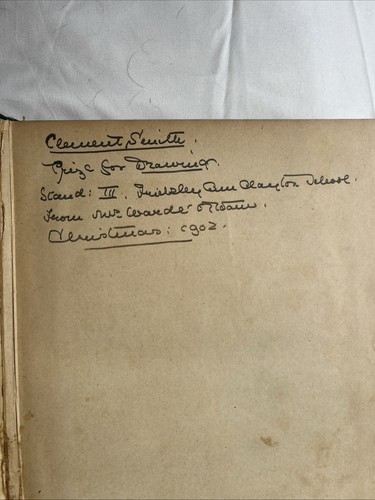 Clement Smith.
Prize for Drawing.
Stand: III. Frickley cum Clayton School.
From Mrs Warde
Christmas: 1902.